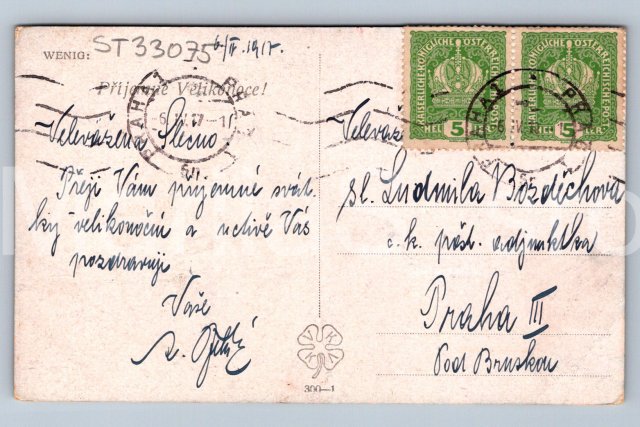 WENIG:
ST33075
6/IV 1917.
Příjemné Velikonoce!
Velevážená Slečno
Přeji Vám příjemné svát
ky velikonoční a uctivě Vás
pozdravuji
Vaše
KAISERLICHE KÖNIGLICHE ÖSTERREICHISCHE POST
5 HELLER
KAISERLICHE KÖNIGLICHE ÖSTERREICHISCHE POST
5 HELLER
PRAHA 1
PRAHA 1
Velevážená
sl. Ludmila Bozděchova
c. k. pošt. adjunktka
Praha III
Pod Bruskou
V K V K
300—1